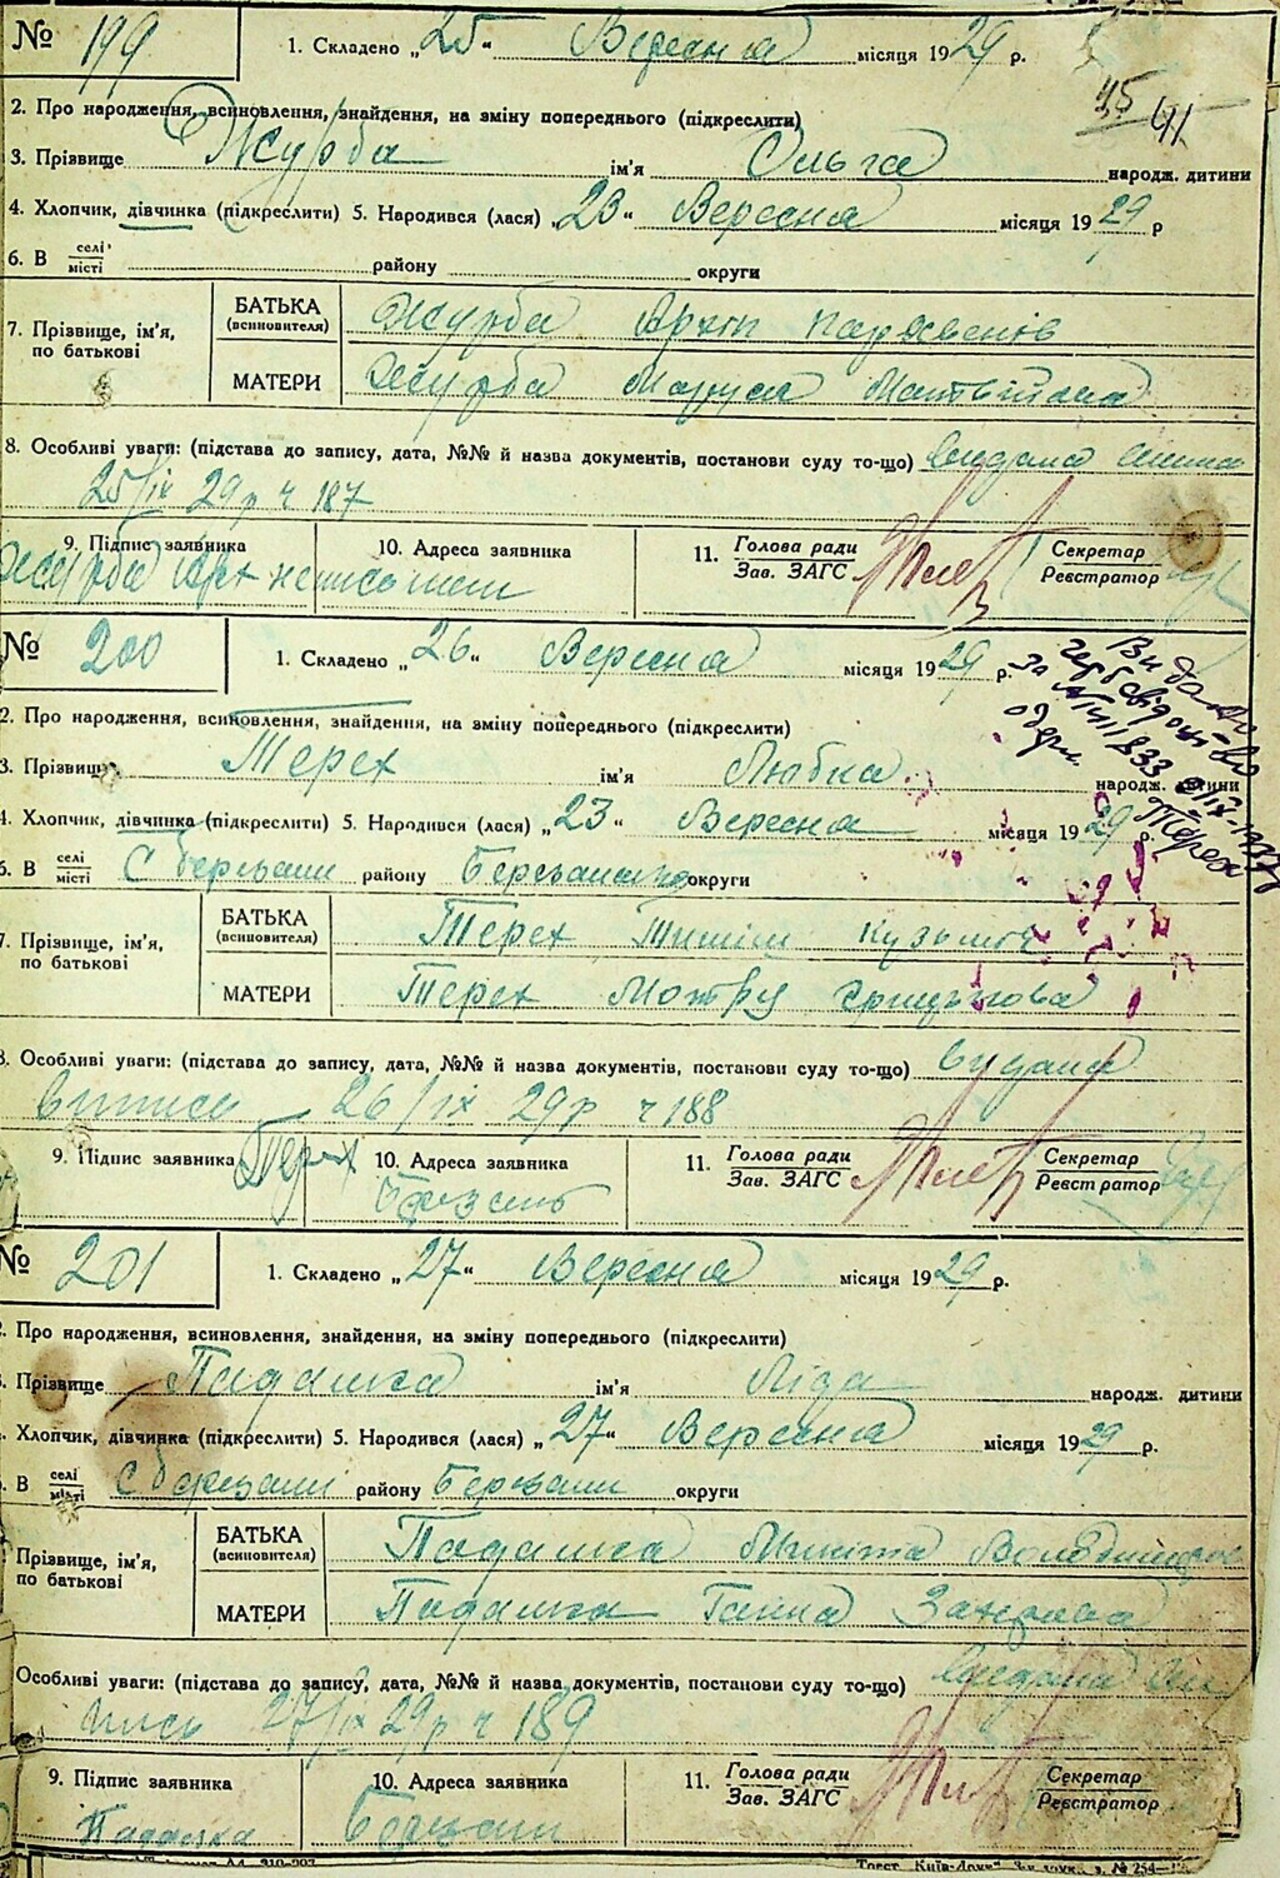 № 199 1. Складено „25“ Вересня місяця 1929 р.
45 41
2. Про народження, всиновлення, знайдення, на зміну попереднього (підкреслити)
3. Прізвище Журба ім'я Ольга народж. дитини
4. Хлопчик, дівчинка (підкреслити) 5. Народився (лася) „23“ Вересня місяця 1929 р
6. В селі місті району округи
7. Прізвище, ім'я, по батькові
БАТЬКА (всиновителя) Журба Архип
МАТЕРИ Журба Маруся
8. Особливі уваги: (підстава до запису, дата, №№ й назва документів, постанови суду то-що) видана
25/ix 29р ч 187
9. Підпис заявника 10. Адреса заявника 11. Голова ради Зав. ЗАГС Секретар Реєстратор
Журба
№ 200 1. Складено „26“ Вересня місяця 1929 р.
Видано
за №
одерж.
Терех
2. Про народження, всиновлення, знайдення, на зміну попереднього (підкреслити)
3. Прізвище Терех ім'я Любка народж. дитини
4. Хлопчик, дівчинка (підкреслити) 5. Народився (лася) „23“ Вересня місяця 1929 р.
6. В селі місті С березани району округи
7. Прізвище, ім'я, по батькові
БАТЬКА (всиновителя) Терех
МАТЕРИ Терех Мотря
8. Особливі уваги: (підстава до запису, дата, №№ й назва документів, постанови суду то-що) видана
витись 26/ix 29р ч 188
9. Підпис заявника Терех 10. Адреса заявника 11. Голова ради Зав. ЗАГС Секретар Реєстратор
Березань
№ 201 1. Складено „27“ Вересня місяця 1929 р.
2. Про народження, всиновлення, знайдення, на зміну попереднього (підкреслити)
Прізвище Падалка ім'я Ліда народж. дитини
Хлопчик, дівчинка (підкреслити) 5. Народився (лася) „27“ Вересня місяця 1929 р.
В селі місті С березані району Березани округи
Прізвище, ім'я, по батькові
БАТЬКА (всиновителя) Падалка Микита
МАТЕРИ Падалка Ганна
Особливі уваги: (підстава до запису, дата, №№ й назва документів, постанови суду то-що) видана ви
пись 27/ix 29р ч 189
9. Підпис заявника 10. Адреса заявника 11. Голова ради Зав. ЗАГС Секретар Реєстратор
Падалка Березані
Трест „Київ-Друк“ № 254